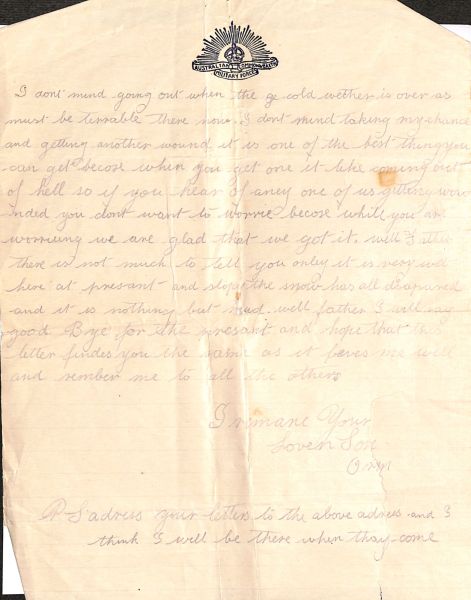 AUSTRALIAN COMMONWEALTH
MILITARY FORCES
I dont mind going out when the ge cold wether is over as
must be terrable there now. I dont mind taking my chance
and getting another wound it is one of the best things you
can get becose when you get one it like coming out
of hell so if you hear of aney one of us getting wou
nded you dont want to worrie becose while you are
worrieing we are glad that we got it. well
there is not much to tell you onley it is very wet
here at presant and the snow has all disapared
and it is nothing but mud. well father I will say
good Bye for the presant and hope that this
letter findes you the same as it leves me well
and rember me to all the others
I remane Your
Loven Son
P-S adress your letters to the above adress and I
think I will be there when thay come